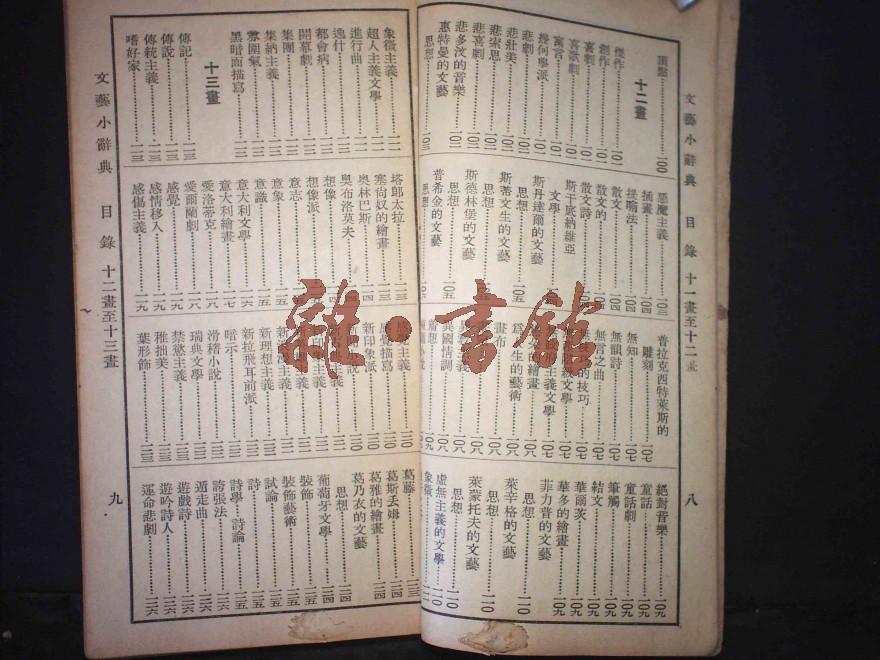 文藝小辭典 目錄 十一畫至十二畫
八
頂點……一〇〇
十二畫
傑作……一〇一
創作……一〇一
喜劇……一〇一
喜歌劇……一〇一
寓言……一〇一
幾何學派……一〇一
悲劇……一〇一
悲壯美……一〇二
悲喜劇……一〇二
悲多汶的音樂……一〇二
惠特曼的文藝
思想……一〇三
惡魔主義……一〇三
插畫……一〇四
提喻法……一〇四
散文……一〇四
散文的……一〇四
散文詩……一〇四
斯干底納維亞
文學……一〇五
斯丹達爾的文藝
思想……一〇五
斯蒂文生的文藝
思想……一〇五
斯德林堡的文藝
思想……一〇五
普希金的文藝
思想
普拉克西特萊斯的
雕刻……一〇七
無知……一〇七
無韻詩……一〇七
無言之曲……一〇七
的技巧……一〇七
文學……一〇七
主義文學……一〇七
的繪畫……一〇八
為人生的藝術……一〇八
畫布……一〇八
異國情調……一〇八
絕對音樂……一〇九
童話……一〇九
童話劇……一〇九
筆觸……一〇九
結文……一〇九
華爾茨……一〇九
華多的繪畫……一〇九
菲力普的文藝
思想……一一〇
萊辛格的文藝
思想……一一〇
萊蒙托夫的文藝
思想……一一〇
虛無主義的文學……一一〇
象徵……一一一
文藝小辭典 目錄 十二畫至十三畫
九
象徵主義……一一一
超人主義文學……一一一
進行曲……一一二
逸什……一一二
都會病……一一二
開幕劇……一一二
集團……一一二
集納主義……一一二
雰圍氣……一一二
黑暗面描寫……一一二
十三畫
傳記……一一三
傳說……一一三
傳統主義……一一三
嗜好家……一一三
塔郎太拉……一一三
塞尙奴的繪畫……一一三
奧林巴斯……一一四
奧布洛莫夫……一一四
想像
想像派
意志
意象
意識
意大利文學
意大利繪畫……一一七
愛洛蒂克……一一八
愛爾蘭劇……一一八
感覺……一一九
感情移入……一一九
感傷主義……一一九
感覺主義……一二〇
感覺描寫……一二〇
新印象派……一二〇
新理想主義……一二一
新拉飛耳前派……一二一
暗示……一二二
滑稽小說……一二二
瑞典文學……一二二
禁慾主義……一二三
稚拙美……一二三
葉形飾……一二三
葛藤……一二三
葛斯丟姆……一二四
葛雅的繪畫……一二四
葛乃衣的文藝
思想……一二四
葡萄牙文學……一二四
裝飾……一二五
裝飾藝術……一二五
試論……一二五
詩……一二五
詩學、詩論……一二五
誇張法……一二六
遁走曲……一二六
遊戲詩……一二六
遊吟詩人……一二六
運命悲劇……一二六
雜·書館